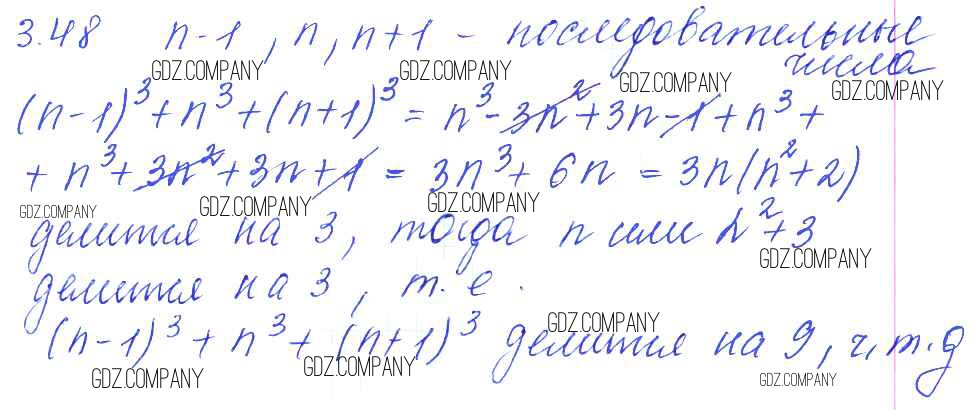 3.48 n-1, n, n+1 - последовательные
числа
GDZ.COMPANY GDZ.COMPANY GDZ.COMPANY GDZ.COMPANY
(n-1)³+n³+(n+1)³ = n³-3n²+3n-1+n³+
+n³+3n²+3n+1 = 3n³+6n = 3n(n²+2)
GDZ.COMPANY GDZ.COMPANY GDZ.COMPANY
делится на 3, тогда n или n²+3
GDZ.COMPANY
делится на 3, т.е.
GDZ.COMPANY
(n-1)³+n³+(n+1)³ делится на 9, ч.т.д
GDZ.COMPANY GDZ.COMPANY GDZ.COMPANY